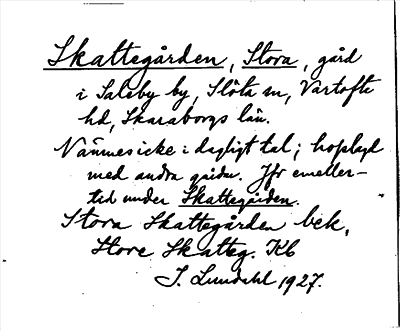 Skattegården, Stora, gård
i Saleby by, Slöta sn, Vartofta
hd, Skaraborgs län.
Nämnes icke i dagligt tal; hoplagd
med andra gårdar. Jfr emeller-
tid under Skattegården.
Stora Skattegården bek.
Store Skatteg. Kb
J. Lundahl 1927.